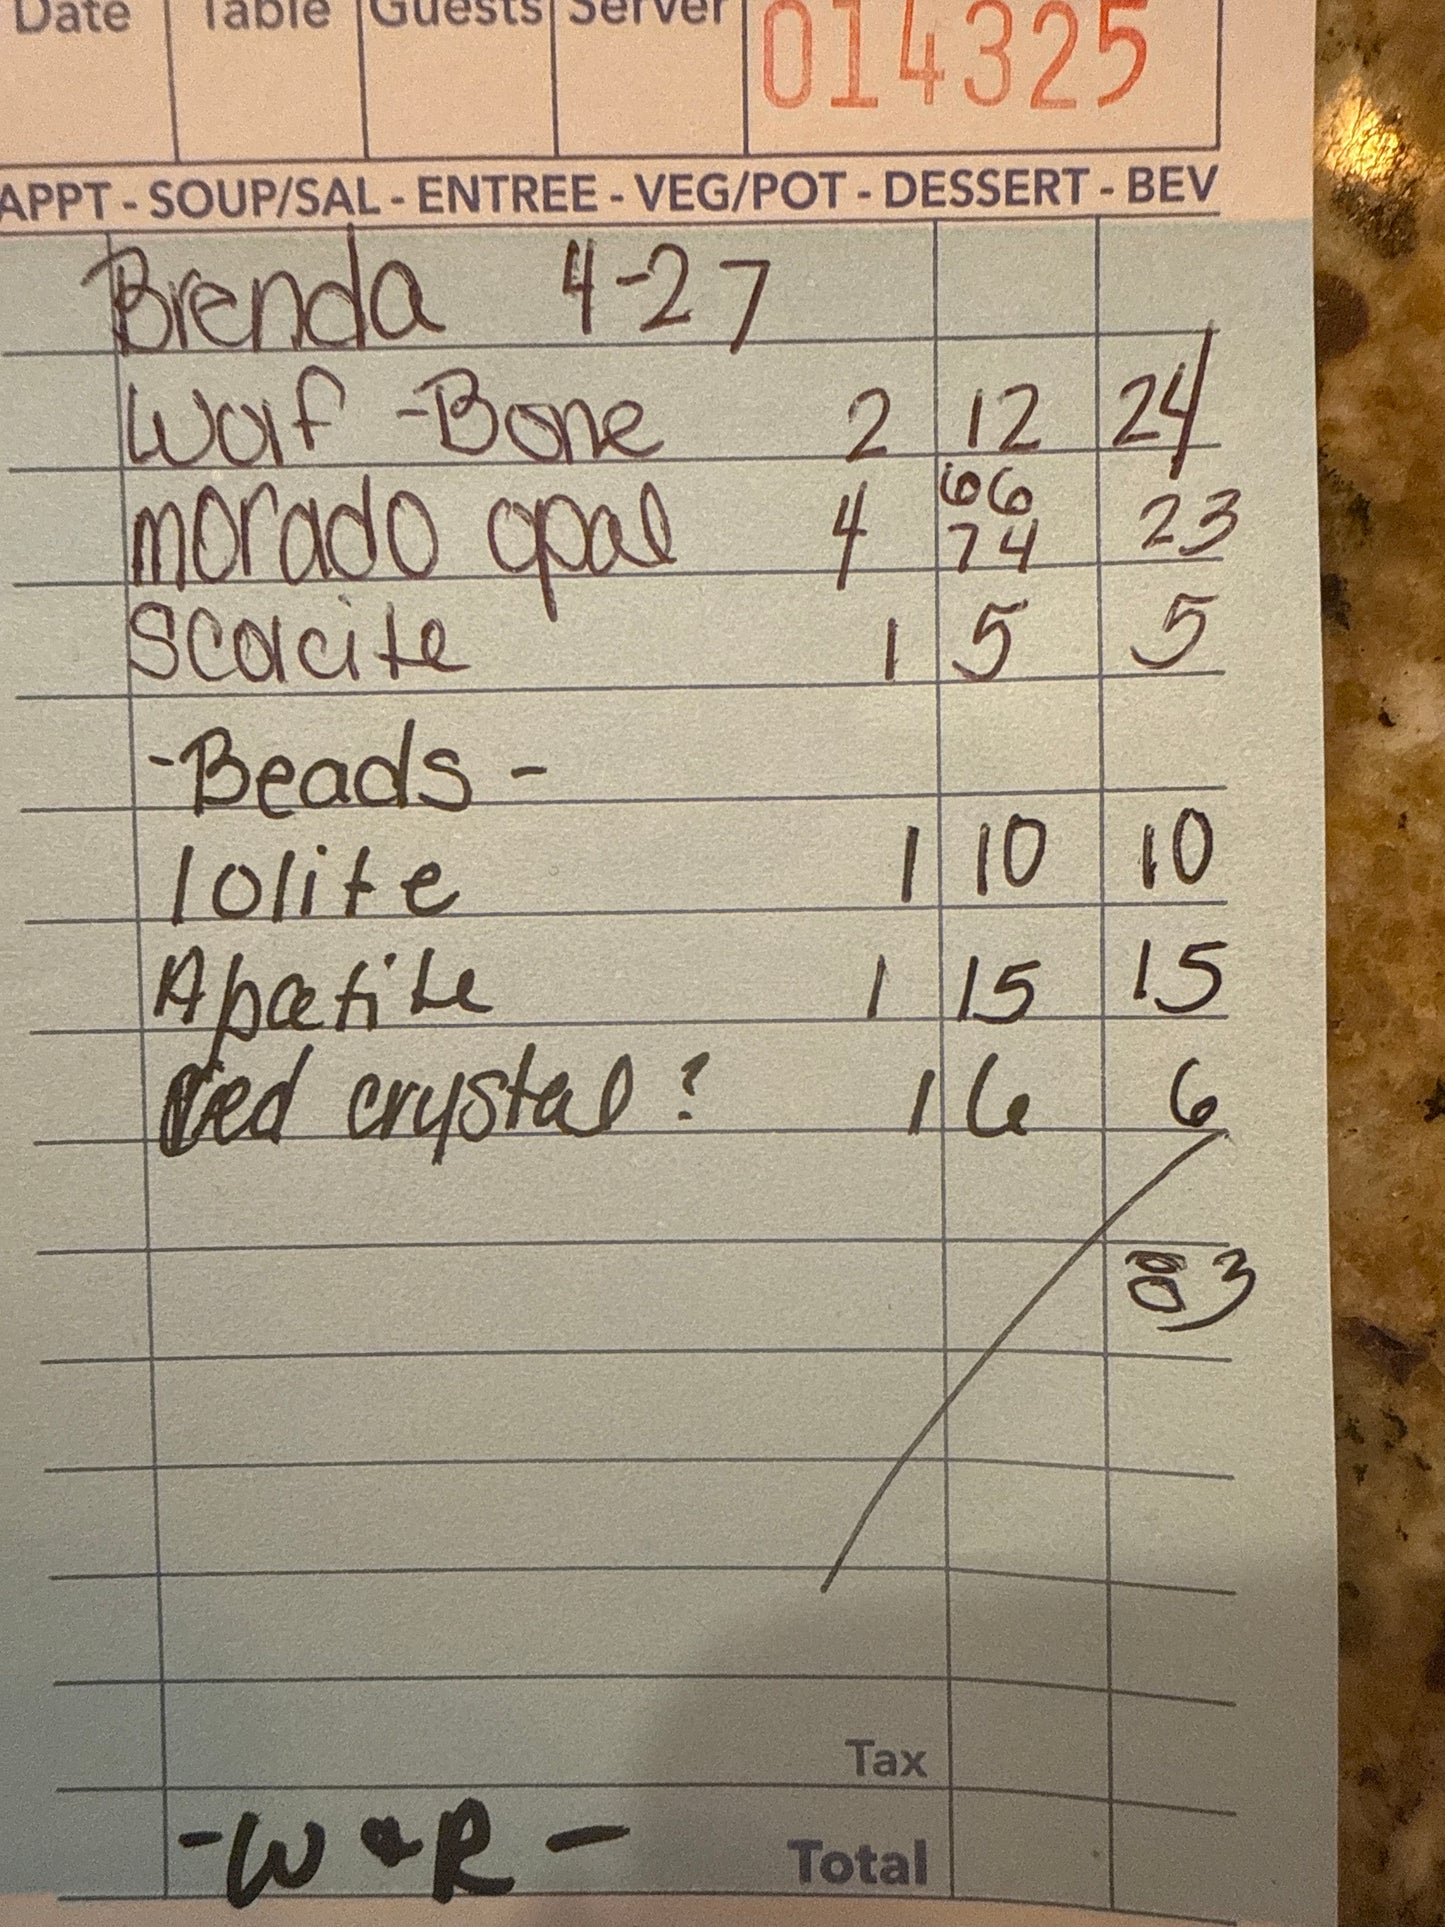 Date Table Guests Server 014325
APPT - SOUP/SAL - ENTREE - VEG/POT - DESSERT - BEV
Brenda 4-27
Wolf - Bone 2 12 24
morado opal 4 66 74 23
Scolcite 1 5 5
- Beads -
Iolite 1 10 10
Apatite 1 15 15
red crystal ? 1 6 6
83
Tax
- W & R - Total